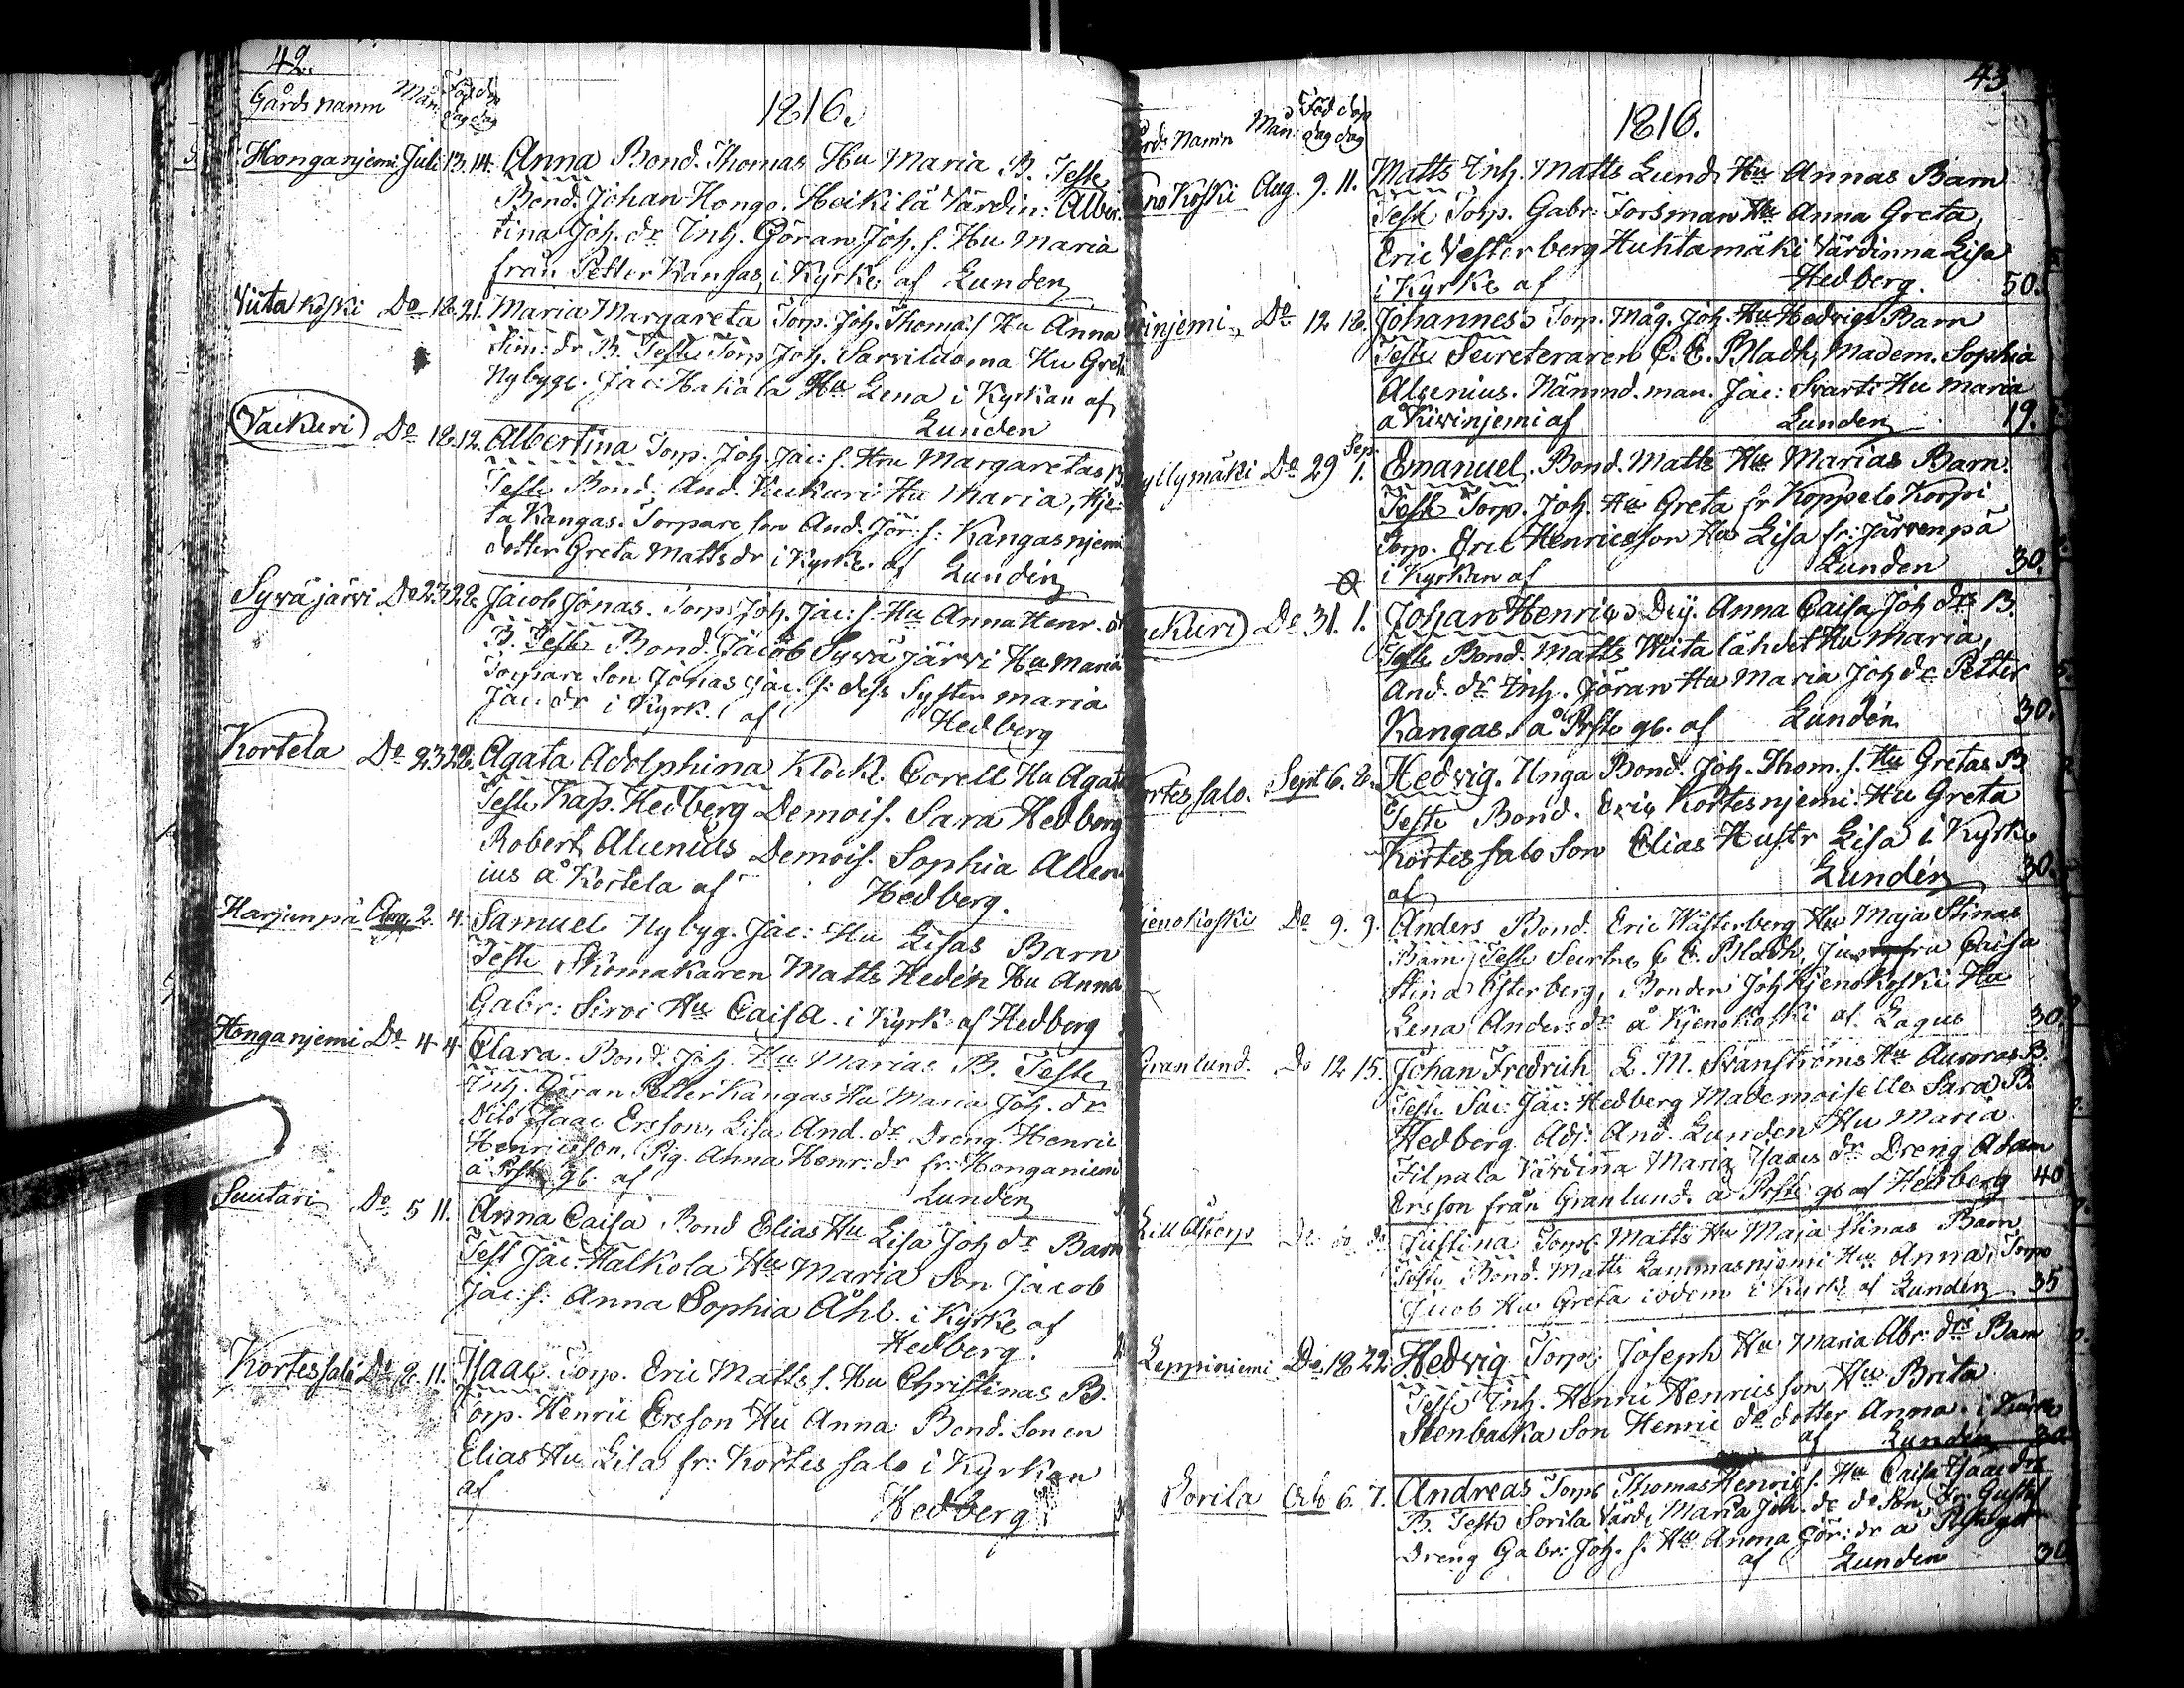 42.
Gårds namn Mån: Föd dop
dag dag
1816.
Honganjemi Juli 13. 14. Anna Bond. Thomas Hu Maria B. Teste
Bond. Johan Hongo. Heikilä Värdin: Alber
tina Joh. dr Inh. Göran Joh. s. Hu Maria
från Petter Kangas, i Kyrke af Lunden
Viita Koski Do 18. 21. Maria Margareta Torp. Joh. Thomæ s Hu Anna
Sim: dr B. Teste Torp Joh. Hu Greta
Nybygg. Jac: Hakala Hu Lena i Kyrkan af
Lunden
Vackuri Do 18. 12. Albertina Torp. Joh Jac: s. Hu Margaretas B.
Teste Bond. And. Kukuri Hu Maria, Hje
ta Kangas. Torpare son And. Jör. s: Kangasnjemi
dotter Greta Matts dr i Kyrke af Lundén
Syväjärvi Do 23. 28. Jacob Jonas. Torp. Joh. Jac: s. Hu Anna Henr. dr
B. Teste Bond. Jacob Syvä järvi Hu Maria
Torpare Son Jonas Jac. s: dess Syster Maria
Jac: dr i Kyrk. af Hedberg
Kortela Do 23. 28. Agata Adolphina Klock. Corell Hu Agata
Teste Kap. Hedberg Demois. Sara Hedberg
Robert Alcenius Demois. Sophia Alcen
ius å Kortela af Hedberg.
Harjunpä Aug. 2. 4. Samuel Nybyg. Jac: Hu Lisas Barn
Teste Skomakaren Matts Hedén Hu Anna
Gabr: Sirvi Hu Caisa. i Kyrk af Hedberg
Honganjemi Do 4 4 Clara. Bond. Joh. Hu Marias B. Teste
Inh. Göran Petter Kangas Hu Maria Joh. dr
Dito Isaac Ersson, Lisa And. dr Dreng Henric
Henricsson. Pig. Anna Henr: dr fr: Honganiemi
å Prst. gb. af Lunden
Suutari Do 5 11. Anna Caisa Bond Elias Hu Lisa Joh dr Barn
Test Jac Halkola Hu Maria Son Jacob
Jac: s: Anna Sophia Åhl. i Kyrke af
Hedberg.
Kortessalo Do 8. 11. Isaac. Torp. Eric Matts s. Hu Christinas B.
Torp. Henric Ersson Hu Anna. Bond. Sonen
Elias Hu Lisa fr: Kortes salo i Kyrkan
af Hedberg
43.
Namn Mån: Föd dop
dag dag
1816.
Koski Aug. 9. 11. Matts Inh. Matts Lund Hu Annas Barn
Teste Torp. Gabr: Forsman Hu Anna Greta,
Eric Vesterberg Huhtamäki Värdinna Lisa
i Kyrke af Hedberg. 50.
injemi Do 12 18. Johannes Torp. Måg. Joh. Hu Hedvigs Barn
Teste Secreteraren C. E. Bladh, Madem. Sophia
Alcenius. Nämnd. man. Jac: Svarti Hu Maria
å Kivinjemi af Lunden 19.
yllymäki Do 29 Sep. 1. Emanuel. Bond. Matts Hu Marias Barn.
Teste Torp. Joh. Hu Greta fr Koppelo Korpi
Torp. Eric Henricsson Hu Lisa fr: Järvenpä
i Kyrkan af Lunden 30.
ckuri Do 31. 1. Johan Henric Dej. Anna Caisa Joh drs B.
Teste Bond. Matts Wiita lähdet Hu Maria,
And. dr Inh. Jöran Hu Maria Joh dr Petter
Kangas å Prste gb. af Lundén 30.
ortes salo. Sept 6. 8. Hedvig. Unga Bond. Joh. Thom. s. Hu Gretas B
Teste Bond. Eric Kortesnjemi Hu Greta
Kortes salo Son Elias Hustr Lisa i Kyrke
af Lundén 30.
jenokoski Do 9. 9. Anders Bond. Eric Wästerberg Hu Maja Stinas
Barn Teste C. E. Bladh, Caisa
Stina Österberg, Bonden Joh Kjenokoski Hu
Lena Anders dr å Kjenokoski af. Lagus 30.
Granlund. Do 12 15. Johan Fredrich L. M. Svanströms Hu Auroras B.
Teste Sac: Jac: Hedberg Mademoiselle Sara B.
Hedberg Adj. And. Lunden Hu Maria
Filpala Värdina Maria Isaacs dr Dreng Adam
Ersson från Granlund. å Prste gb af Hedberg 40
Justina Torp. Matts Hu Maja Stinas Barn
Teste Bond. Matts Lammasnjemi Hu Anna, Torp
Jacob Hu Greta i Kyrk af Lundén 35
Leppiniemi Do 18 22. Hedvig Torp. Joseph Hu Maria Abr: drs Barn
Teste Inh. Henric Henricsson Hu Brita
Stenbacka Son Henric do dotter Anna. i Kyrke
af Lundén 30
Sorila Octo 6. 7. Andreas Torp Thomas Henric s. Hu Caisa Isaac drs
B. Teste Sorila Värd. Maria Joh. dr do Son Gustaf
Dreng Gabr: Joh. s. Hu Anna Gör: dr å
af Lunden 30